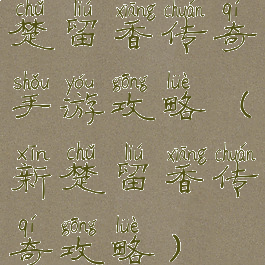 chǔ liú xiāng chuán qí
楚留香传奇
shǒu yóu gōng lüè
手游攻略（
xīn chǔ liú xiāng chuán
新楚留香传
qí gōng lüè
奇攻略）